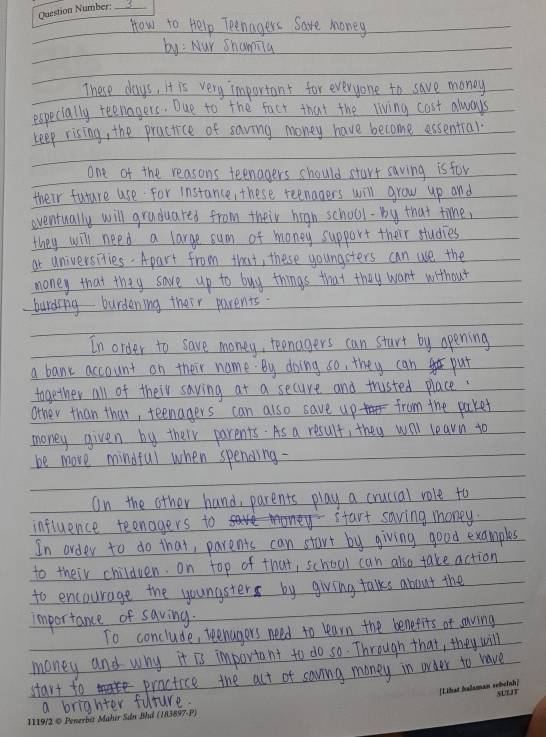 Question Number: 3
How to Help Teenagers Save Money
by: Nur Shamila
These days, it is very important for everyone to save money
especially teenagers. Due to the fact that the living cost always
keep rising, the practice of saving money have become essential.
One of the reasons teenagers should start saving is for
their future use. For instance, these teenagers will grow up and
eventually will graduated from their high school. By that time,
they will need a large sum of money support their studies
at universities. Apart from that, these youngsters can use the
money that they save up to buy things that they want without
burdring burdening their parents.
In order to save money, teenagers can start by opening
a bank account on their name. By doing so, they can put
together all of their saving at a secure and trusted place.
Other than that, teenagers can also save up from the pocket
money given by their parents. As a result, they will learn to
be more mindful when spending.
On the other hand, parents play a crucial role to
influence teenagers to save money start saving money.
In order to do that, parents can start by giving good examples
to their children. On top of that, school can also take action
to encourage the youngsters by giving talks about the
importance of saving.
To conclude, teenagers need to learn the benefits of saving
money and why it is important to do so. Through that, they will
start to make practice the act of saving money in order to have
a brighter future.
[Lihat halaman sebelah]
SULIT
1119/2 © Penerbit Mahir Sdn Bhd (183897-P)